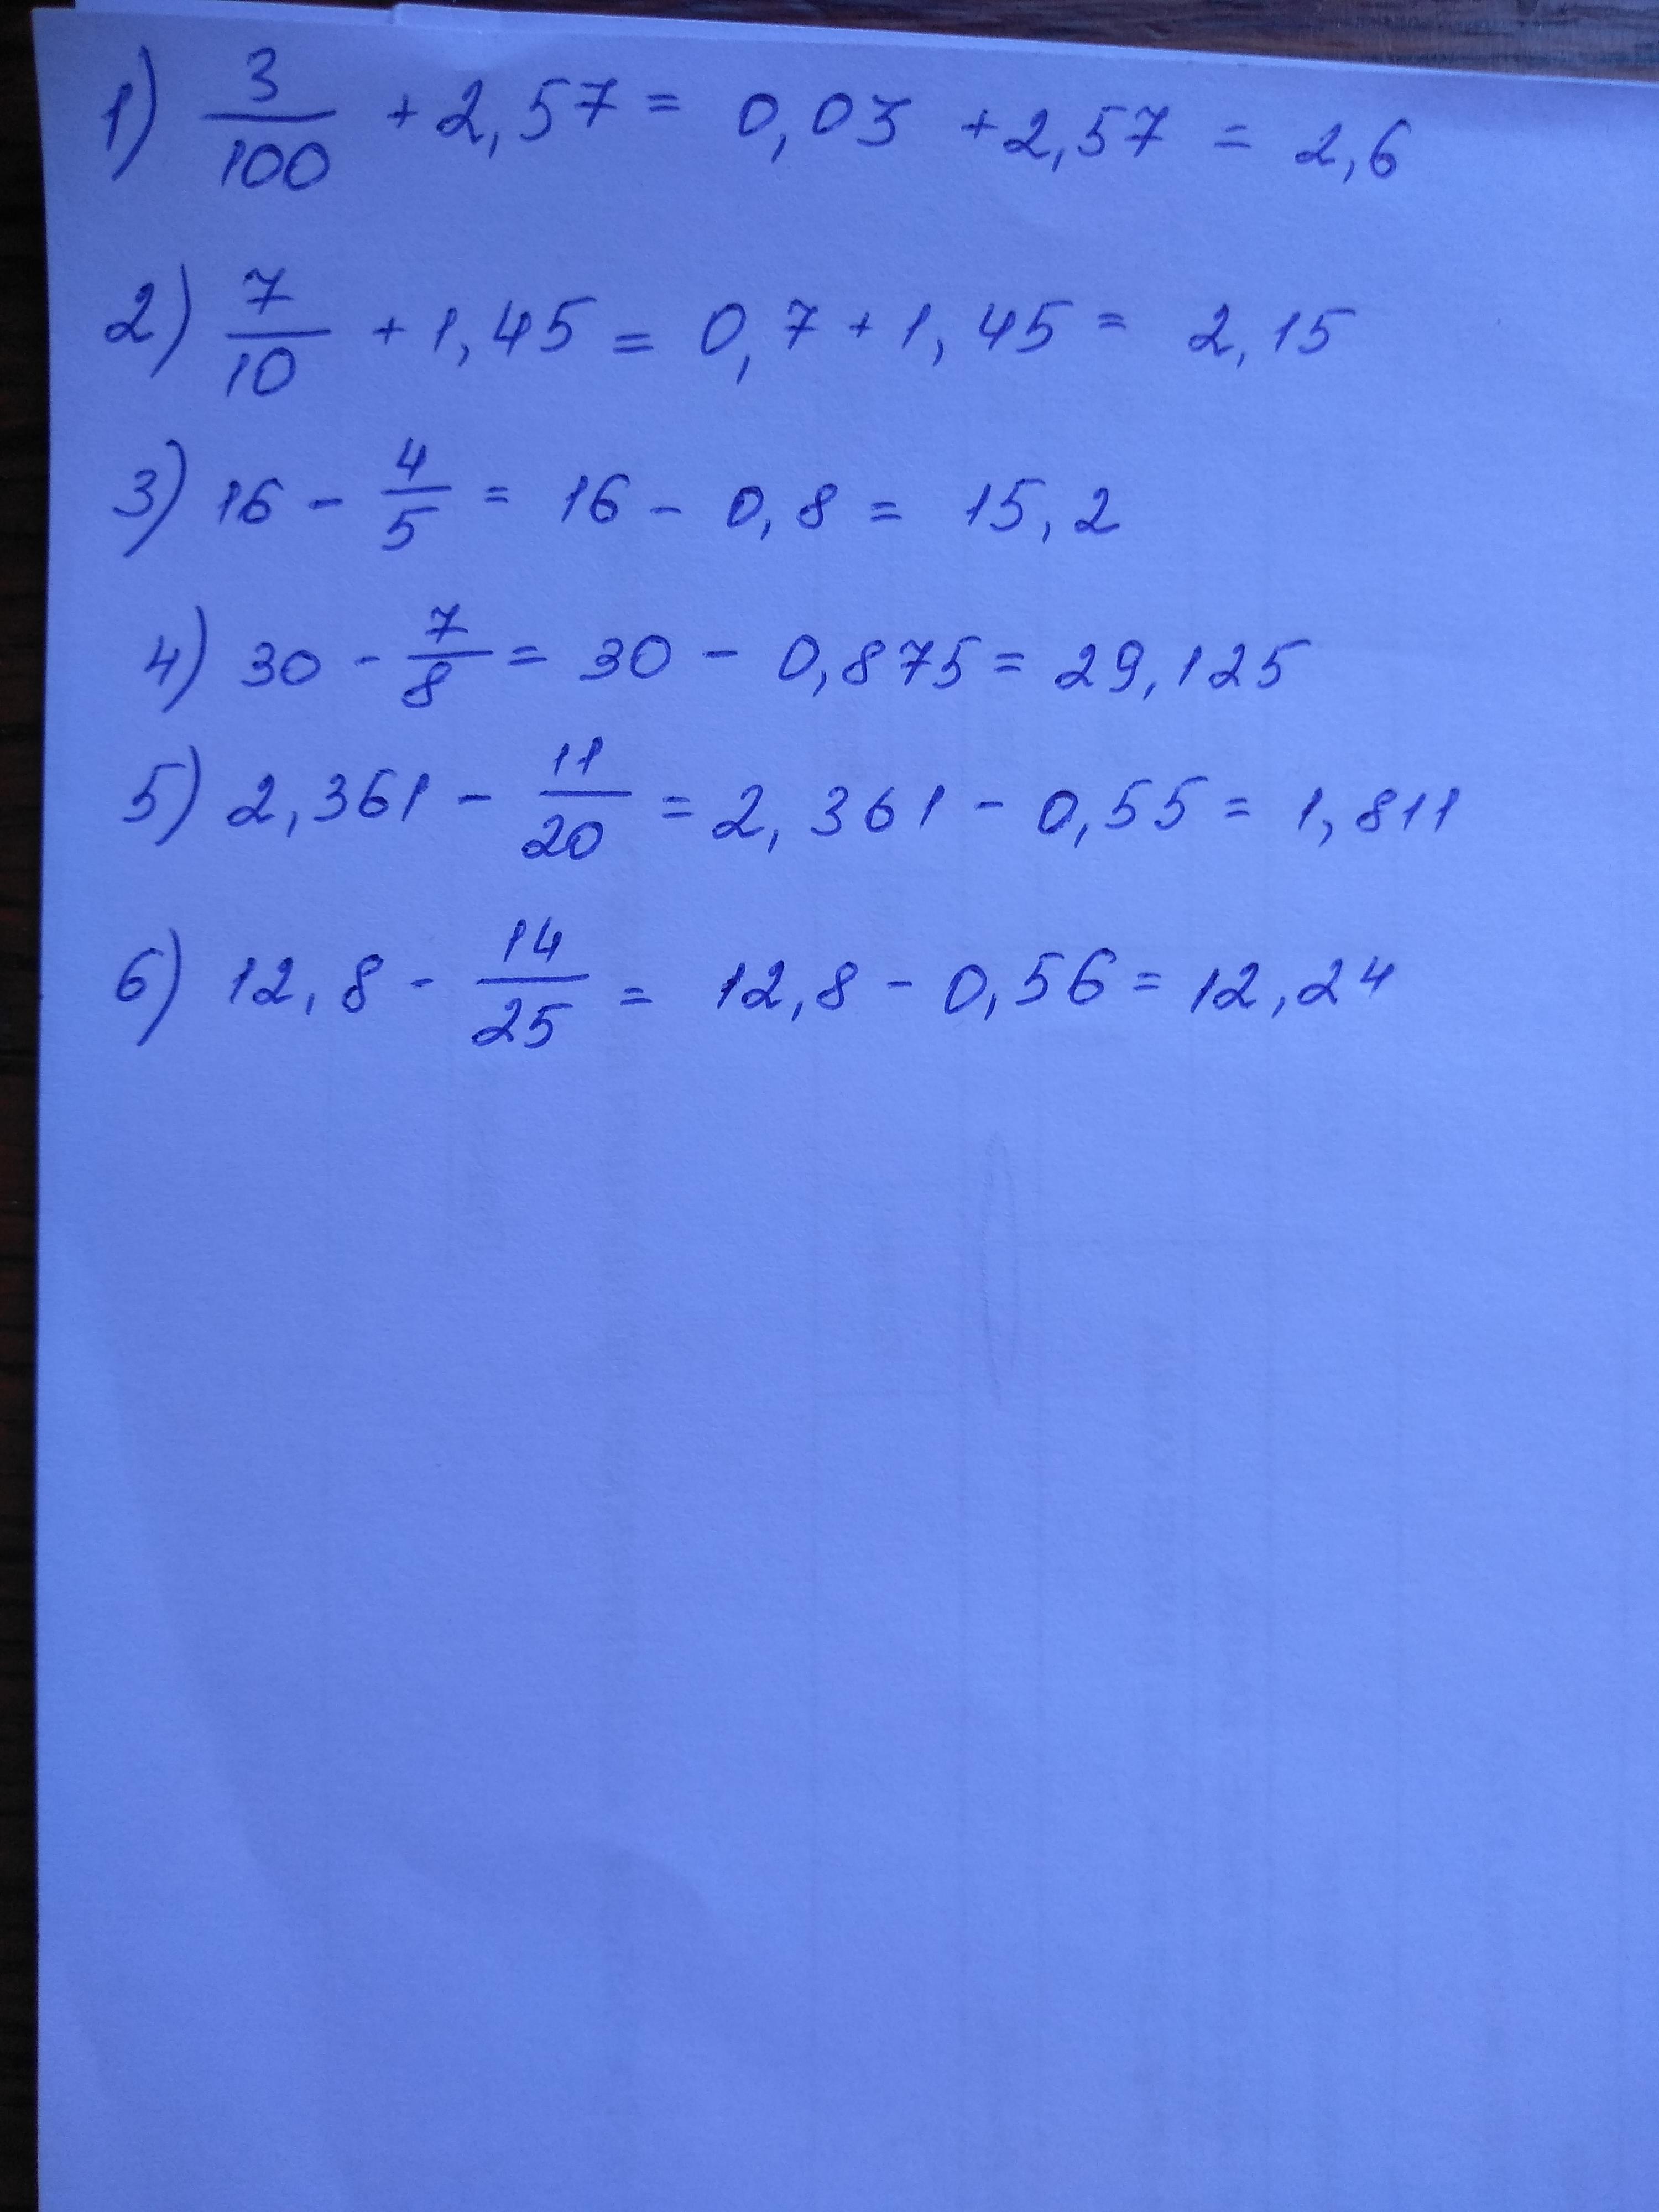 1) 3/100 + 2,57 = 0,03 + 2,57 = 2,6
2) 7/10 + 1,45 = 0,7 + 1,45 = 2,15
3) 16 - 4/5 = 16 - 0,8 = 15,2
4) 30 - 7/8 = 30 - 0,875 = 29,125
5) 2,361 - 11/20 = 2,361 - 0,55 = 1,811
6) 12,8 - 14/25 = 12,8 - 0,56 = 12,24